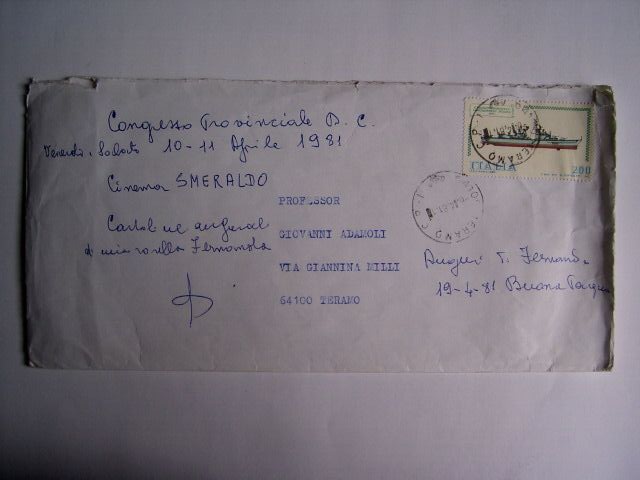 Congresso Provinciale D. C.
Venerdì, Sabato 10-11 Aprile 1981
Cinema SMERALDO
PROFESSOR
GIOVANNI ADAMOLI
VIA GIANNINA MILLI
64100 TERAMO
di mia sorella Fernanda
Auguri T. Fernanda
19-4-81 Buona Pasqua
ITALIA 200
TERAMO C.P.
TERAMO C.P.